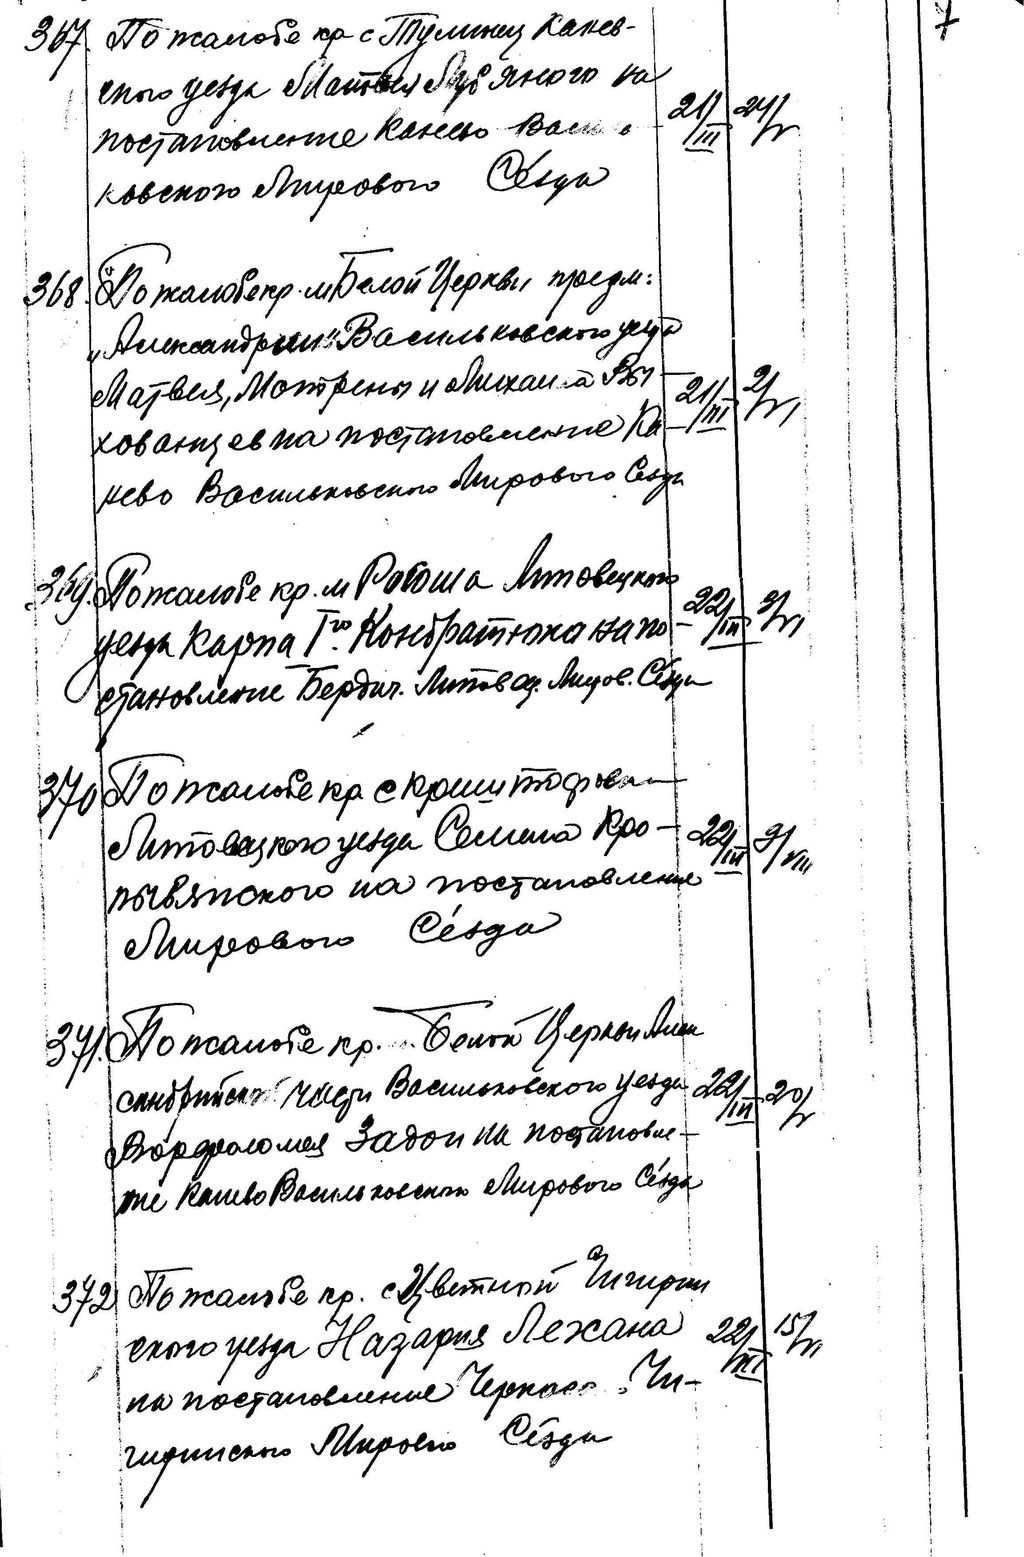 7
367. По жалобе кр с Тулинец Канев-
ского уезда Матвея на
постановление Канево
ковского Мирового Сезда
21/III 24/V
368. По жалобе кр. м Белой Церкви предм:
„Александрии" Васильковского уезда
Матвея, Мотрены и Михаила Вы-
хованцев на постановление Ка-
нево Васильковского Мирового Сезда
21/III 2/VI
369. По жалобе кр. м Ротоша Липовецкого
уезда Карпа Iго Кондратюка на по-
становление Бердич. Липовец. Миров. Сезда
22/III 3/VI
370 По жалобе кр с
Липовецкого уезда Семена Кро-
пывянского на постановление
Мирового Сезда
22/III 9/VIII
371. По жалобе кр. Белой Церкви Алек
сандрийской части Васильковского уезда
Варфоломея Задои на постановле-
ние Канево Васильковского Мирового Сезда
22/III 20/V
372 По жалобе кр. с Цветной Чигирин
ского уезда Назария Лехана
на постановление Черкасс. Чи-
гиринского Мирового Сезда
22/III 15/VI